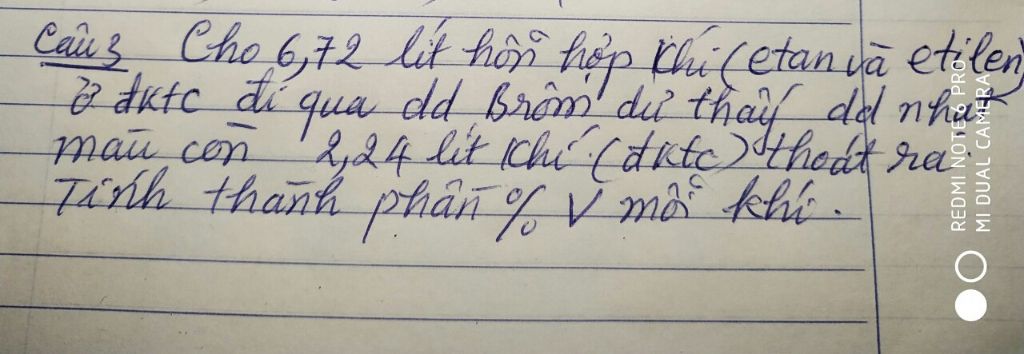 Câu 3 Cho 6,72 lít hỗn hợp khí (etan và etilen)
ở đktc đi qua dd Brôm dư thấy dd nhạt
màu còn 2,24 lít khí (đktc) thoát ra.
Tính thành phần % V mỗi khí.
REDMI NOTE 6 PRO
MI DUAL CAMERA